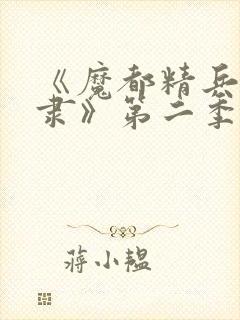 《魔都精兵
隶》第二季
蒋小韫